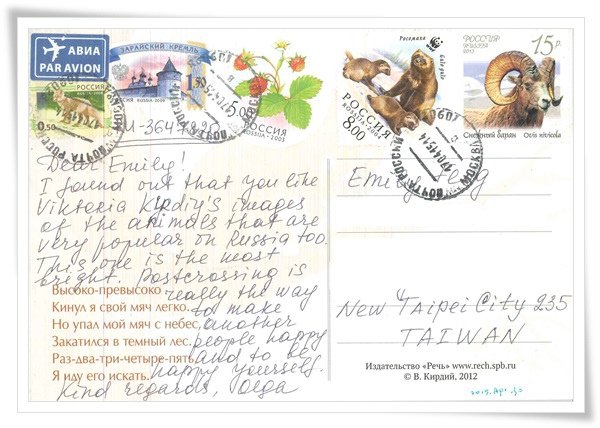 АВИА
PAR AVION
ЗАРАЙСКИЙ КРЕМЛЬ
РОССИЯ RUSSIA · 2009
РОССИЯ
0.50
РОССИЯ
ROSSIJA · 2005
Росомаха
WWF
Gulo gulo
РОССИЯ
8.00
РОССИЯ
RUSSIA
2013
15р.
Снежный баран Ovis nivicola
ПОЧТА РОССИИ МОСКВА
Dear Emily!
I found out that you like
Viktoria Kirdiy's images
of the animals that are
very popular in Russia too.
This one is the most
bright. Postcrossing is
really the way
to make
another
people happy
and to be
happy yourself.
Kind regards, Olga
Высоко-превысоко
Кинул я свой мяч легко.
Но упал мой мяч с небес,
Закатился в темный лес.
Раз-два-три-четыре-пять,
Я иду его искать.
Emily
New Taipei City 235
TAIWAN
Издательство «Речь» www.rech.spb.ru
© В. Кирдий, 2012